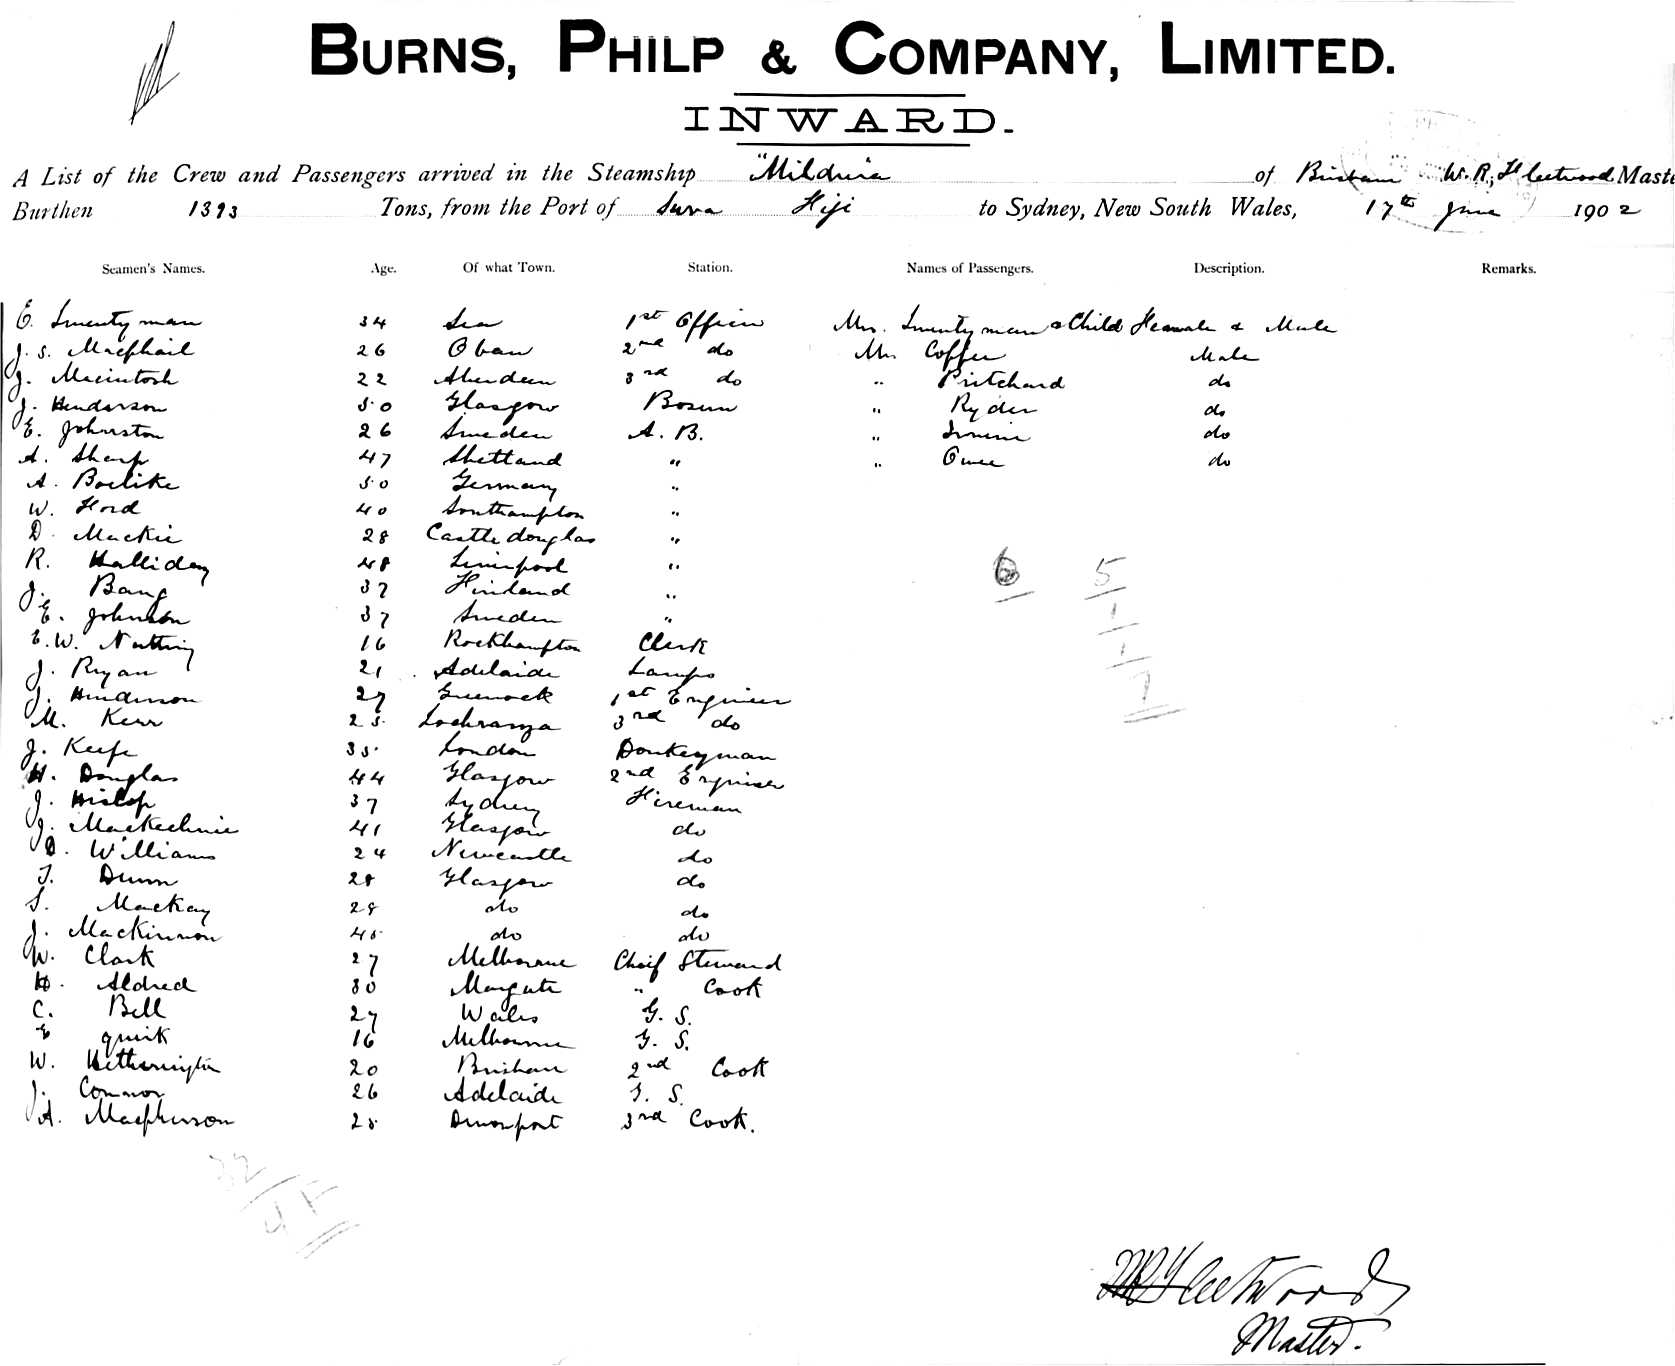 BURNS, PHILP & COMPANY, LIMITED.
INWARD.
A List of the Crew and Passengers arrived in the Steamship "Mildura" of Brisbane W. R. Fleetwood Maste
Burthen 1393 Tons, from the Port of Suva Fiji to Sydney, New South Wales, 17th June 1902
Seamen's Names. Age. Of what Town. Station. Names of Passengers. Description. Remarks.
E. Twentyman 34 Sea 1st Officer Mrs. Twentyman & Child Female & Male
J. S. Macphail 26 Oban 2nd do Mr. Coffee Male
J. Macintosh 22 Aberdeen 3rd do " Pritchard do
J. Henderson 50 Glasgow Bosun " Ryder do
E. Johnston 26 Sweden A. B. " Irvine do
A. Sharp 47 Shetland " " Owen do
A. Boelike 50 Germany "
W. Ford 40 Southampton "
D. Mackie 28 Castledouglas "
R. Halliday 48 Liverpool "
J. Bang 37 Finland "
E. Johnson 37 Sweden "
E. W. Nutting 16 Rockhampton Clerk
J. Ryan 21 Adelaide Lamps
J. Henderson 27 Greenock 1st Engineer
M. Kerr 25 Lochranza 3rd do
J. Keefe 35 London Donkeyman
H. Douglas 44 Glasgow 2nd Engineer
J. Hislop 37 Sydney Fireman
J. MacKechnie 41 Glasgow do
D. Williams 24 Newcastle do
T. Dunn 28 Glasgow do
S. Mackay 28 do do
J. MacKinnon 45 do do
W. Clark 27 Melbourne Cheif Steward
H. Aldred 30 Margate " Cook
C. Bell 27 Wales G. S.
E Quirk 16 Melbourne G. S.
W. Hetherington 20 Brisbane 2nd Cook
J. Connor 26 Adelaide F. S.
A. Macpherson 28 Devonport 3rd Cook.
6 5
1
1
7
32
W R Fleetwood
Master.